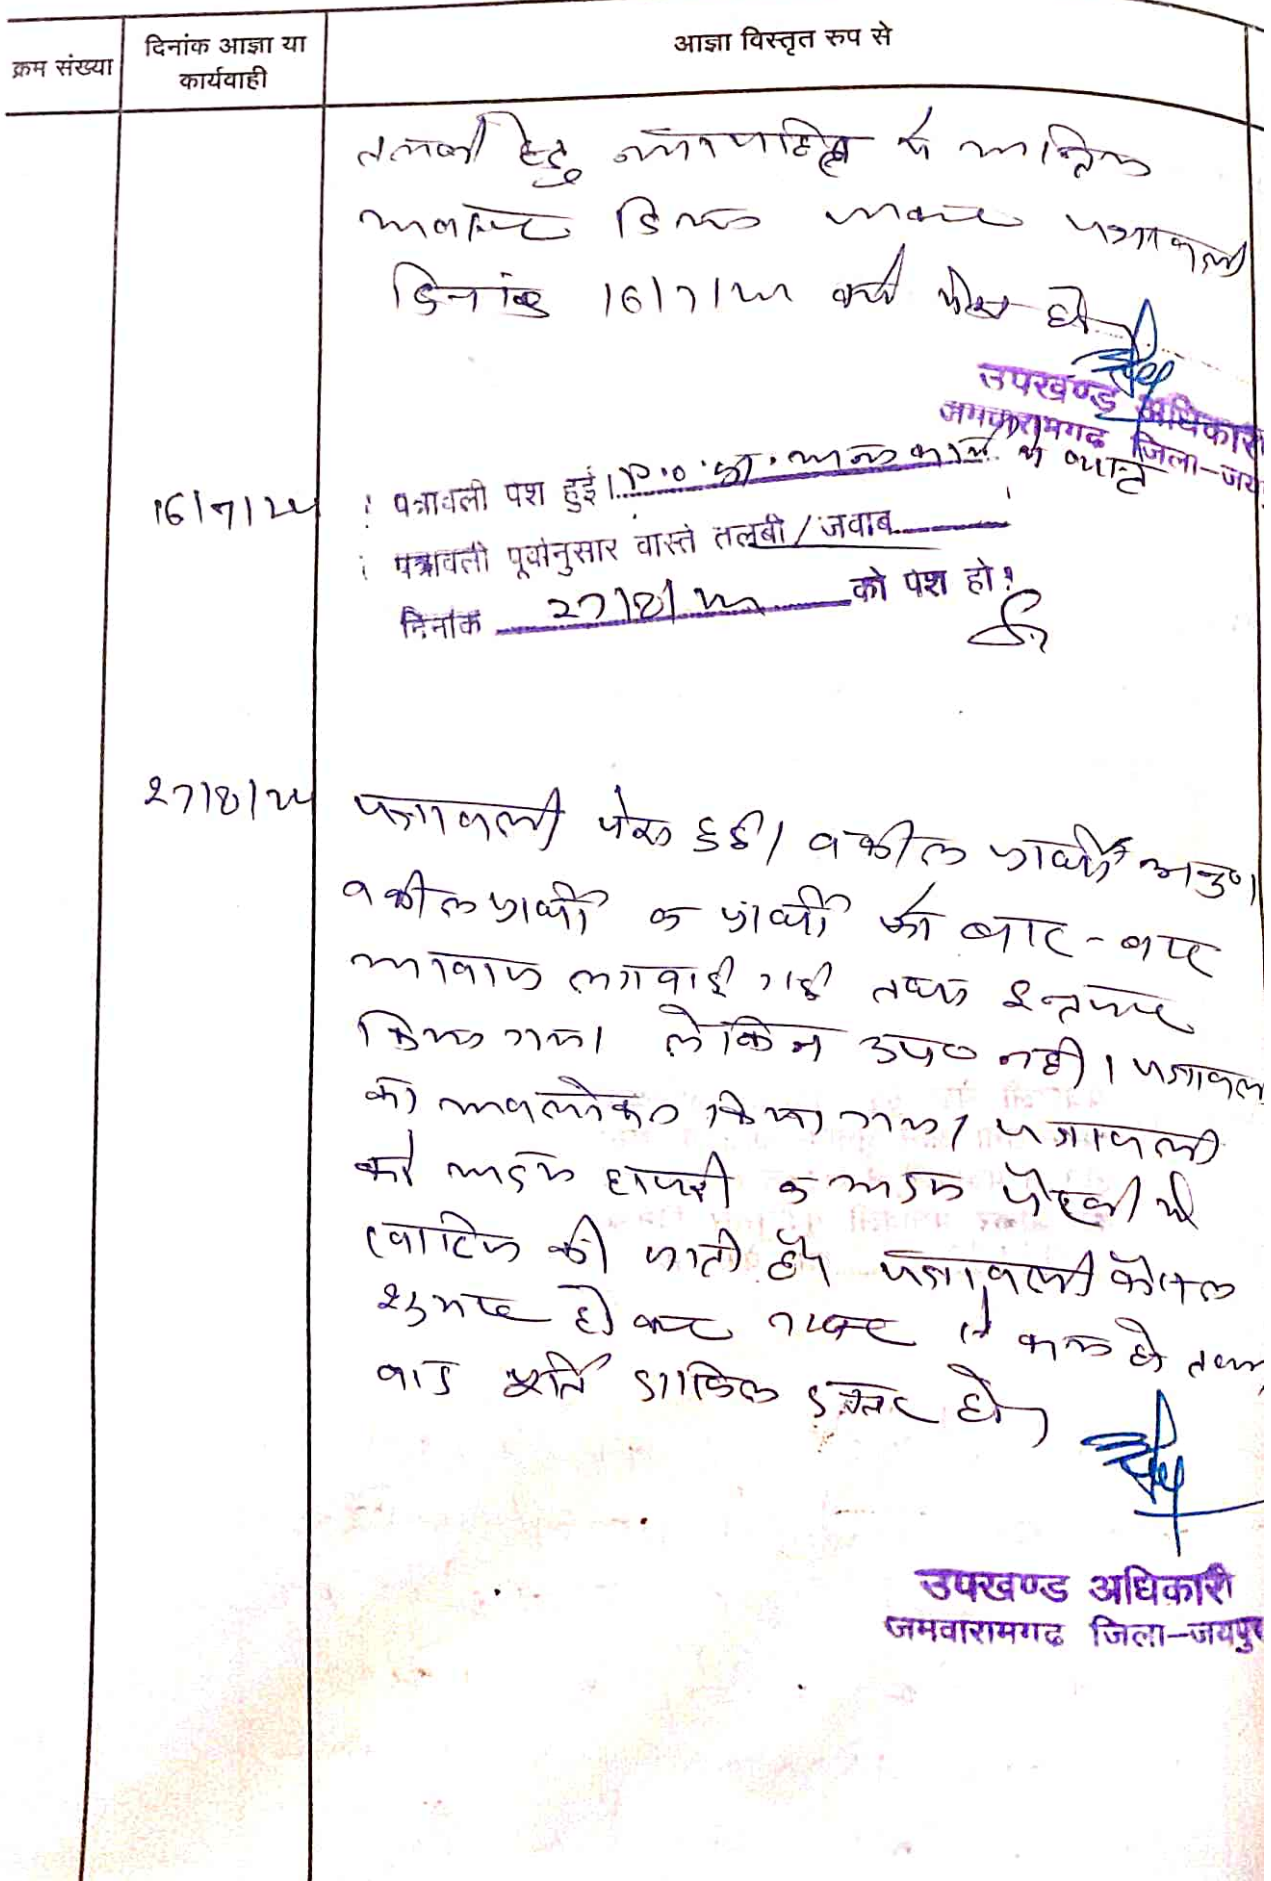 क्रम संख्या
दिनांक आज्ञा या
कार्यवाही
आज्ञा विस्तृत रुप से
तलबी हेतु न्यायहित में अन्तिम
अवसर दिया जाकर पत्रावली
दिनांक 16/7/24 को पेश हो
उपखण्ड अधिकारी
जमवारामगढ जिला-जयपुर
16/7/24
पत्रावली पेश हुई। P.O. का अन्य कार्य में व्यस्त
पत्रावली पूर्वानुसार वास्ते तलबी/जवाब
दिनांक 27/8/24 को पेश हो।
27/8/24
पत्रावली पेश हुई। वकील प्रार्थी अनु०
वकील प्रार्थी व प्रार्थी को बार-बार
आवाज लगवाई गई तथा इन्तजार
किया गया। लेकिन उप० नही। पत्रावली
का अवलोकन किया गया। पत्रावली
को अदम हाजरी व अदम पैरवी में
खारिज की जाती है। पत्रावली फैसल
शुमार हो कर नम्बर से कम हो तथा
बाद पूर्ति दाखिल दफ्तर हो।
उपखण्ड अधिकारी
जमवारामगढ जिला-जयपुर